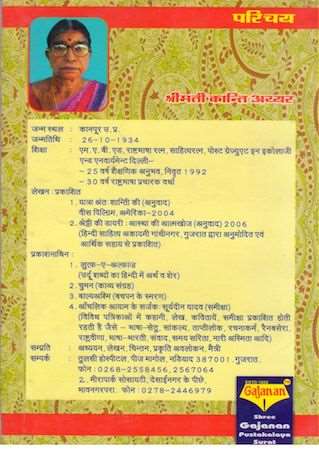 परिचय
श्रीमती कान्ति अय्यर
जन्म स्थल : कानपुर उ.प्र.
जन्मतिथि : 26-10-1934
शिक्षा : एम. ए. बी. एड. राष्ट्रभाषा रत्न, साहित्यरत्न, पोस्ट ग्रेज्युएट इन इकोलाजी
एन्ड एनवार्यमेन्ट दिल्ली-
- 25 वर्ष शैक्षणिक अनुभव, निवृत 1992
- 30 वर्ष राष्ट्रभाषा प्रचारक वर्धा
लेखन : प्रकाशित
1. यात्रा अंतः शान्ति की (अनुवाद)
वीस विल्ियम, अमेरिका-2004
2. श्रेष्ठी की डायरी : आस्था की आत्मखोज (अनुवाद) 2006
(हिन्दी साहित्य अकादमी गांधीनगर, गुजरात द्वारा अनुमोदित एवं
आर्थिक सहाय से प्रकाशित)
प्रकाशनाधिन :
1. लुत्फ-ए-अल्फाज़
(उर्दू शब्दों का हिन्दी में अर्थ व शेर)
2. चुभन (काव्य संग्रह)
3. बाल्यअश्मि (बचपन के स्मरण)
4. आँचलिक आयाम के सर्जक: सूर्यदीन यादव (समीक्षा)
(विविध पत्रिकाओं में कहानी, लेख, कवितायें, समीक्षा प्रकाशित होती
रहती है जैसे - भाषा-सेतु, सांकल्य, ताप्तीलोक, रचनाकर्म, रैनबसेरा,
राष्ट्रवीणा, भाषा-भारती, संवाद, समय सरिता, नारी अस्मिता आदि)
सम्प्रति : अध्ययन, लेखन, चिन्तन, प्रकृति अवलोकन, मैत्री
सम्पर्क : तुलसी होस्पीटल, पीज मार्गल, नडियाद 387001, गुजरात.
फोन : 0268-2558456, 2567064
2., मीरापार्क सोसायटी, देसाईनगर के पीछे,
भावनगरपरा. फोन : 0278-2446979
Gajanan
Shree
Gajanan
Pustakalaya
Surat